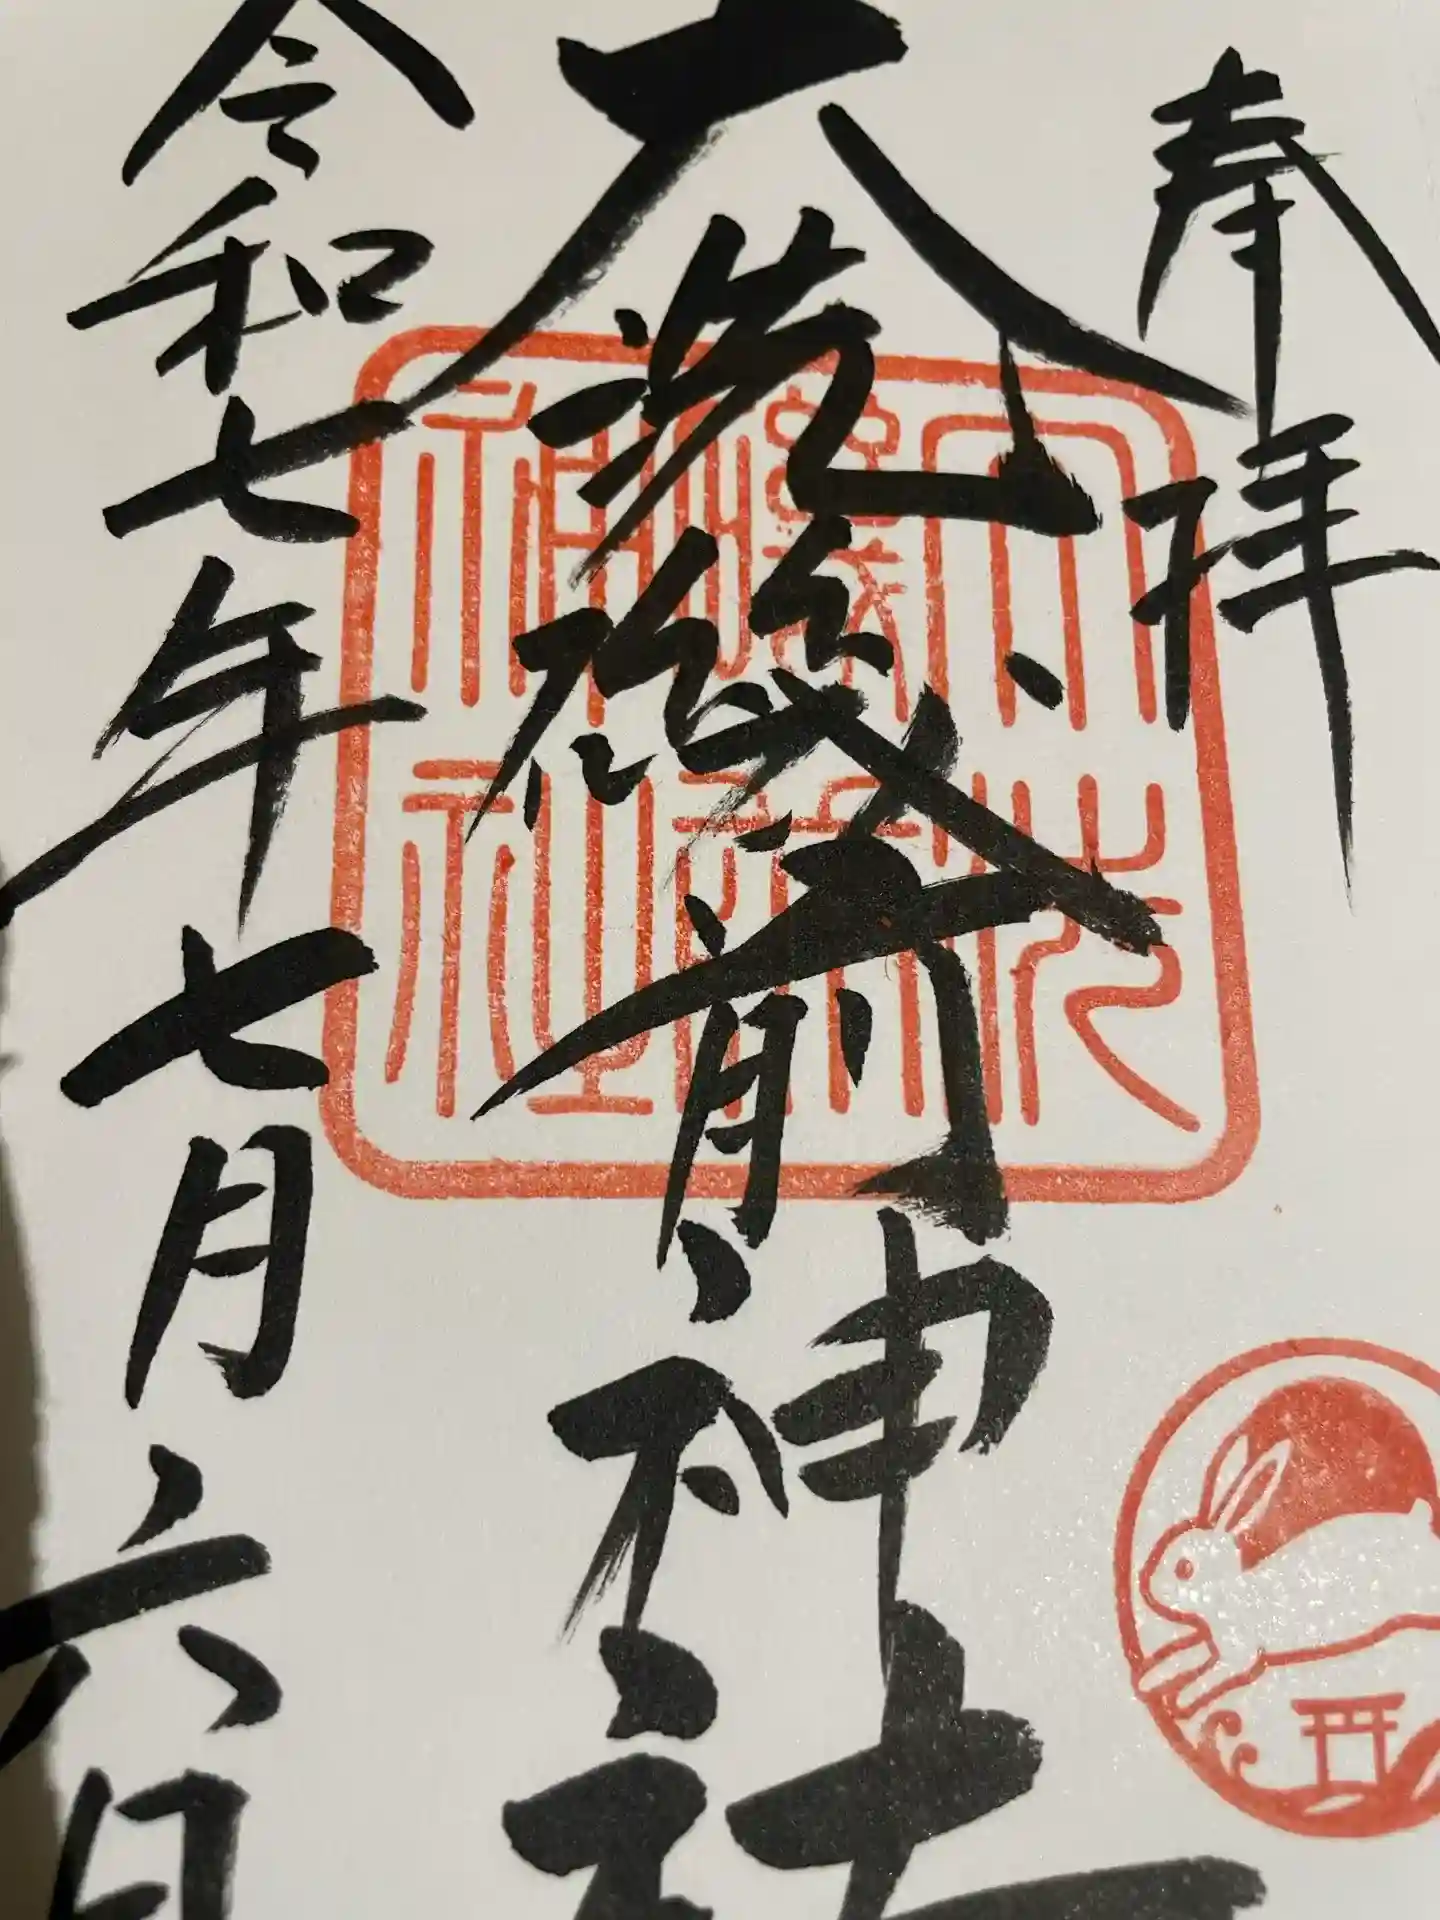 奉拝
大洗磯前神社
令和七年七月六日
大洗
磯前
神社